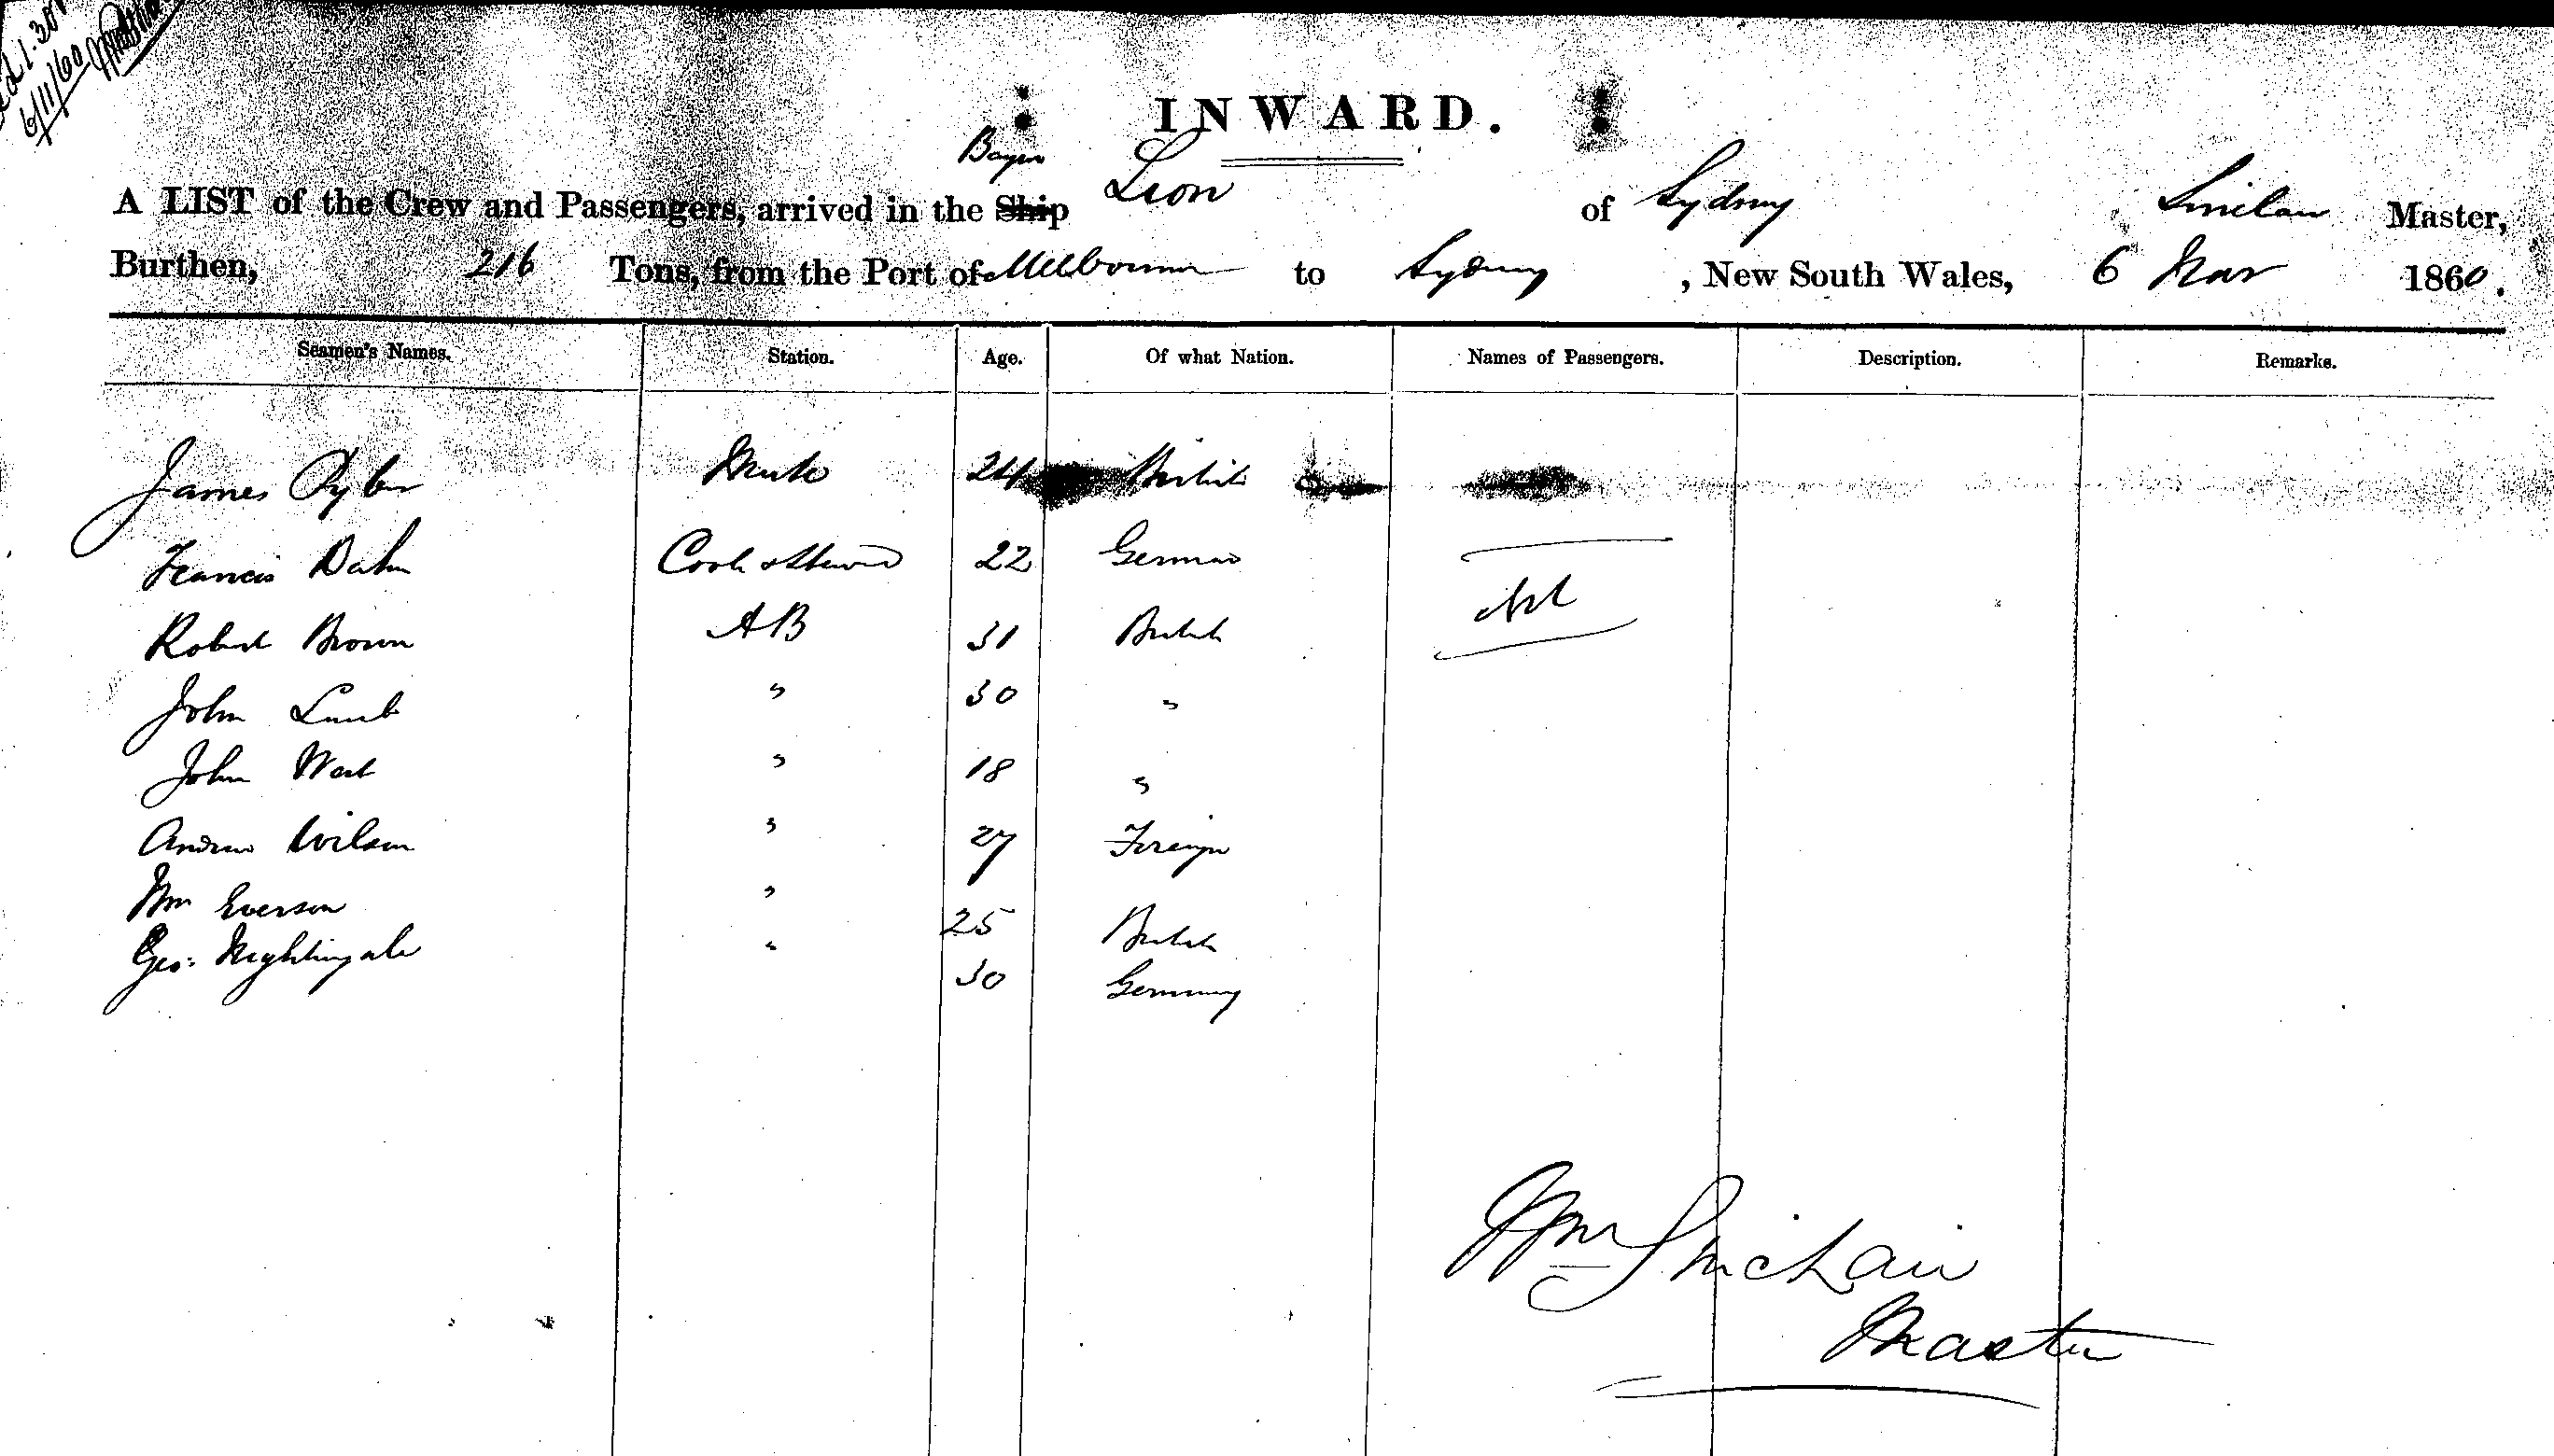 6/11/60
INWARD.
A LIST of the Crew and Passengers, arrived in the Ship Lion of Sydney Sinclair Master,
Burthen, 216 Tons, from the Port of Melbourne to Sydney, New South Wales, 6 Nov 1860.
Seamen's Names. Station. Age. Of what Nation. Names of Passengers. Description. Remarks.
James Pyler Mate 24 British
Francis Dahn Cook & Steward 22 German
Nil
Robert Brown AB 31 British
John Lumb " 30 "
John West " 18 "
Andrew Wilson " 27 Foreign
Wm Everson " 25 British
Geo: Nightingale " 30 Germany
Wm Sinclair
Master